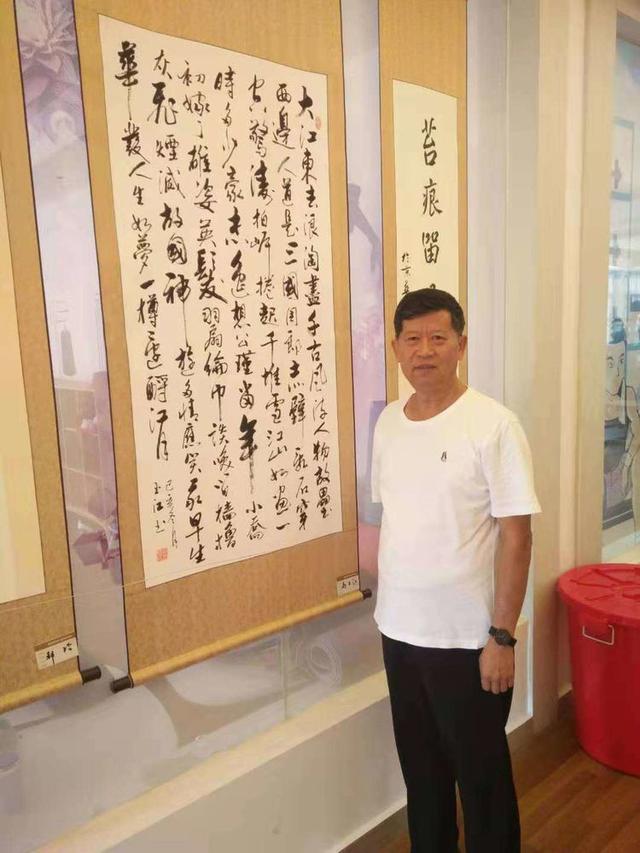 大江東去浪淘盡千古風流人物故壘
西邊人道是三國周郎赤壁亂石穿
空驚濤拍岸捲起千堆雪江山如畫一
時多少豪杰遙想公瑾當年小喬
初嫁了雄姿英髮羽扇綸巾談笑間檣櫓
灰飛煙滅故國神遊多情應笑我早生
華發人生如夢一樽還酹江月
己亥冬月
玉江书
苔痕留